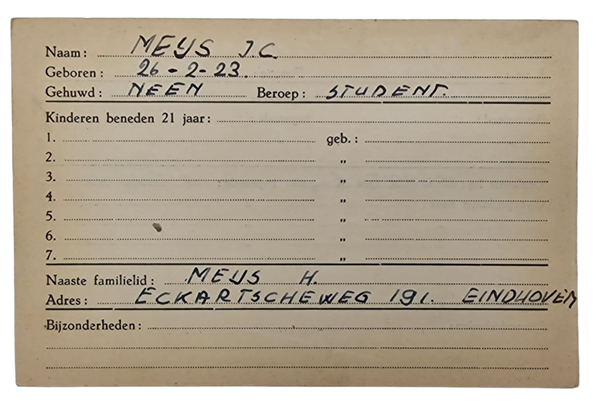 Naam: MEYS J.C.
Geboren: 26-2-23.
Gehuwd: NEEN Beroep: STUDENT.
Kinderen beneden 21 jaar:
1. geb.:
2. „
3. „
4. „
5. „
6. „
7. „
Naaste familielid: MEYS H.
Adres: ECKARTSCHEWEG 191. EINDHOVEN
Bijzonderheden: